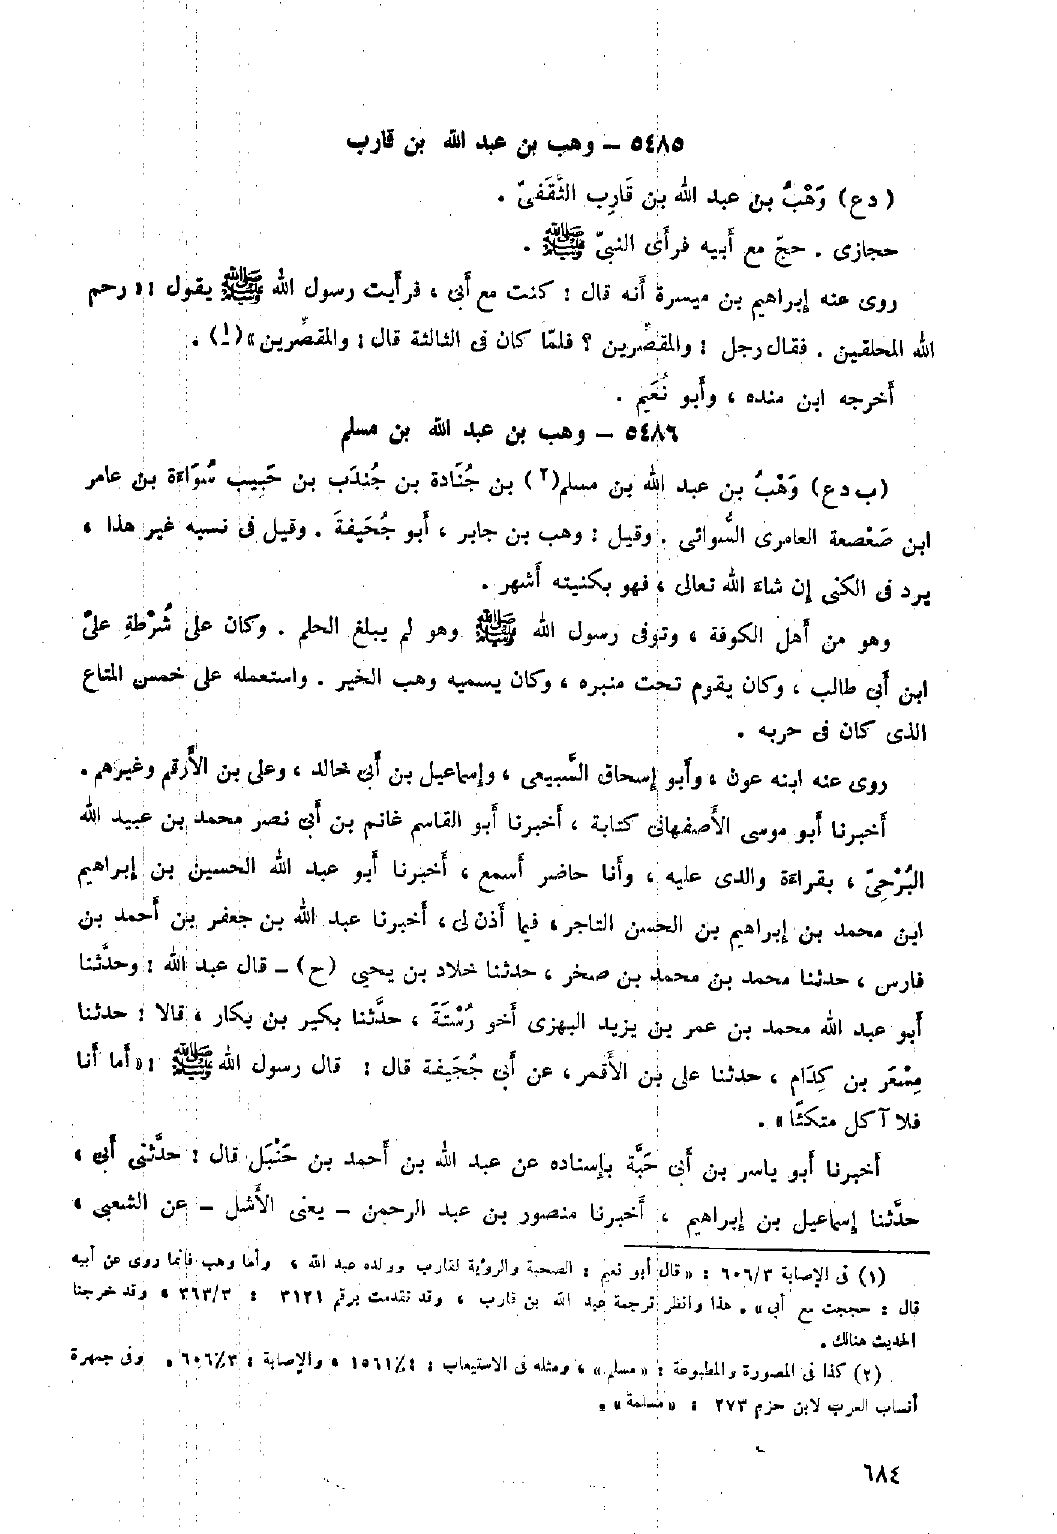 ٥٤٨٥ – وهب بن عبد الله بن قارب
(دع) وَهْبُ بن عبد الله بن قَارِب الثَّقَفىّ .
حجازى . حجّ مع أبيه فرأى النبىّ ﷺ .
روى عنه إبراهيم بن ميسرة أنه قال : كنت مع أبى ، فرأيت رسول الله ﷺ يقول : « رحم
الله المحلقين . فقال رجل : والمقصِّرين ؟ فلمّا كان فى الثالثة قال : والمقصِّرين » (١) .
أخرجه ابن منده ، وأبو نُعَيم .
٥٤٨٦ – وهب بن عبد الله بن مسلم
(ب دع) وَهْبُ بن عبد الله بن مسلم(٢) بن جُنَادة بن جُندَب بن حَبِيب سُوَاءَة بن عامر
ابن صَعْصعة العامرى السُّوائى . وقيل : وهب بن جابر ، أبو جُحَيفةَ . وقيل فى نسبه غير هذا ،
يرد فى الكنى إن شاء الله تعالى ، فهو بكنيته أشهر .
وهو من أهل الكوفة ، وتوفى رسول الله ﷺ وهو لم يبلغ الحلم . وكان على شُرْطةِ علىِّ
ابن أبى طالب ، وكان يقوم تحت منبره ، وكان يسميه وهب الخير . واستعمله على خمس المتاع
الذى كان فى حربه .
روى عنه ابنه عون ، وأبو إسحاق السَّبيعى ، وإسماعيل بن أبى خالد ، وعلى بن الأرقم وغيرهم .
أخبرنا أبو موسى الأصفهانى كتابة ، أخبرنا أبو القاسم غانم بن أبى نصر محمد بن عبيد الله
البُرْجِىّ ، بقراءة والدى عليه ، وأنا حاضر أسمع ، أخبرنا أبو عبد الله الحسين بن إبراهيم
ابن محمد بن إبراهيم بن الحسن التاجر، فيما أذن لى ، أخبرنا عبد الله بن جعفر بن أحمد بن
فارس ، حدثنا محمد بن محمد بن صخر ، حدثنا خلاد بن يحيى (ح) – قال عبد الله : وحدَّثنا
أبو عبد الله محمد بن عمر بن يزيد البهزى أخو رُسْتَةَ ، حدَّثنا بكير بن بكار ، قالا : حدثنا
مِسْعَر بن كِدَام ، حدثنا على بن الأقمر ، عن أبى جُحَيفة قال : قال رسول الله ﷺ : « أما أنا
فلا آكل متكئًا » .
أخبرنا أبو ياسر بن أبى حَبَّة بإسناده عن عبد الله بن أحمد بن حَنْبَل قال : حدَّثنى أبى ،
حدَّثنا إسماعيل بن إبراهيم ، أخبرنا منصور بن عبد الرحمن – يعنى الأشل – عن الشعبى ،
(١) فى الإصابة ٦٠٦/٣ : « قال أبو نعيم : الصحبة والرؤية لقارب وولده عبد الله ، وأما وهب فإنما روى عن أبيه
قال : حججت مع أبى » . هذا وانظر ترجمة عبد الله بن قارب ، وقد تقدمت برقم ٣١٢١ : ٣٦٣/٣ ، وقد خرجنا
الحديث هنالك .
(٢) كذا فى المصورة والمطبوعة : « مسلم » ، ومثله فى الاستيعاب : ١٥٦١/٤ ، والإصابة : ٦٠٦/٣ . وفى جمهرة
أنساب العرب لابن حزم ٢٧٣ : « مسلمة » .
٦٨٤